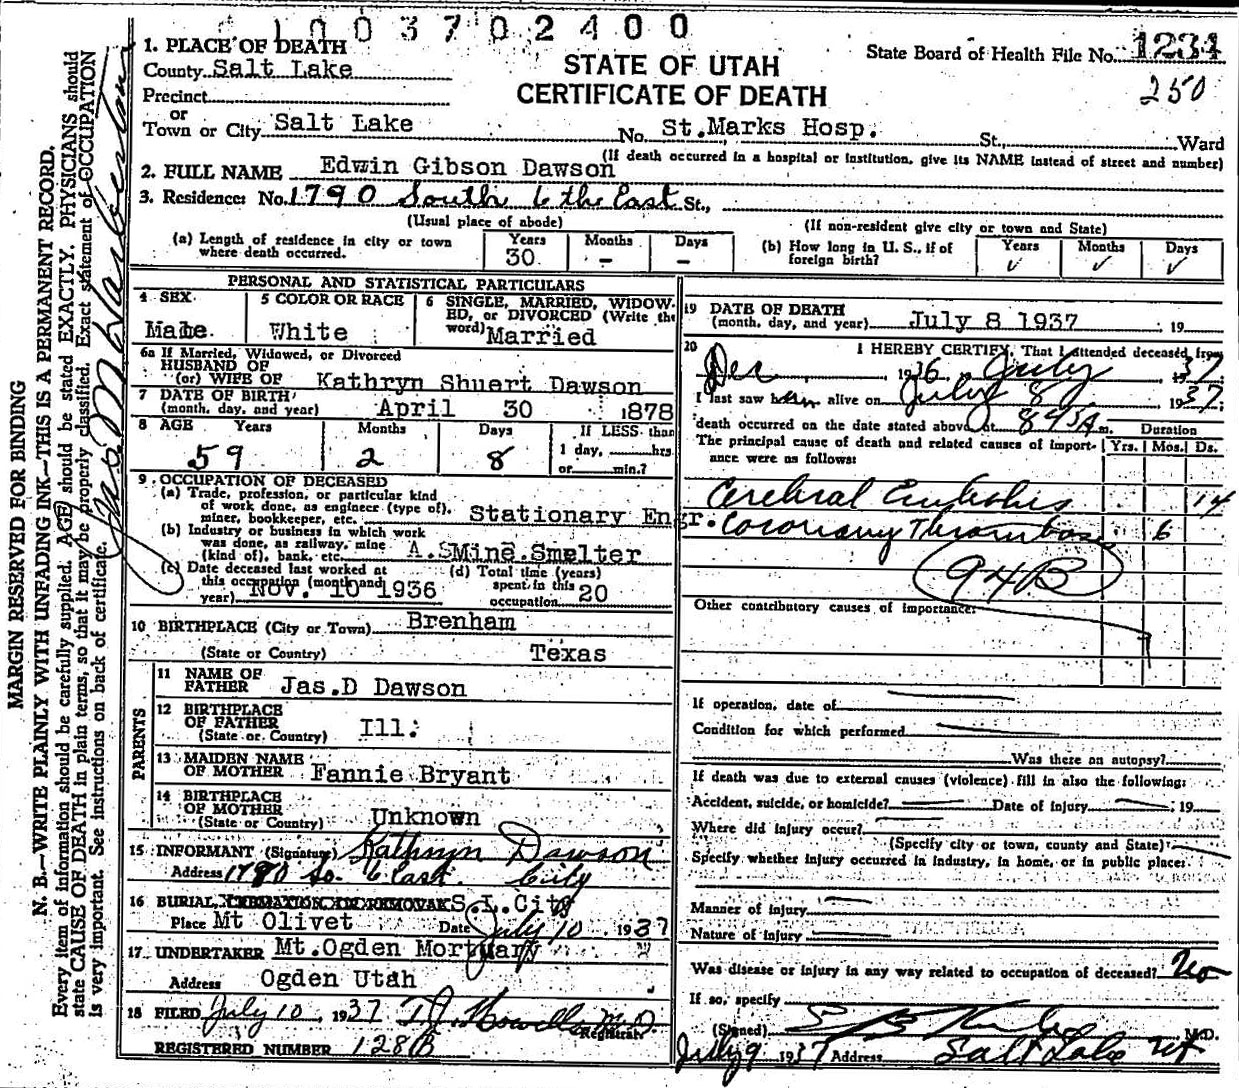 1003702400
1. PLACE OF DEATH
County Salt Lake
STATE OF UTAH
State Board of Health File No. 1231
Precinct
CERTIFICATE OF DEATH
250
or
Town or City Salt Lake No. St.Marks Hosp. St., Ward
(If death occurred in a hospital or institution, give its NAME instead of street and number)
2. FULL NAME Edwin Gibson Dawson
3. Residence: No. 1790 South 6 the East St.,
(Usual place of abode) (If non-resident give city or town and State)
(a) Length of residence in city or town where death occurred. Years 30 Months - Days -
(b) How long in U. S., if of foreign birth? Years ✓ Months ✓ Days ✓
PERSONAL AND STATISTICAL PARTICULARS
4 SEX Male
5 COLOR OR RACE White
6 SINGLE, MARRIED, WIDOWED, or DIVORCED (Write the word) Married
6a If Married, Widowed, or Divorced
HUSBAND OF
(or) WIFE OF Kathryn Shuert Dawson
7 DATE OF BIRTH
(month, day, and year) April 30 1878
8 AGE Years 59 Months 2 Days 8 If LESS than 1 day, hrs. or min.?
9. OCCUPATION OF DECEASED
(a) Trade, profession, or particular kind
of work done, as engineer (type of),
miner, bookkeeper, etc. Stationary Engr.
(b) Industry or business in which work
was done, as railway, mine
(kind of), bank, etc. A.SMine.Smelter
(c) Date deceased last worked at
this occupation (month and
year) Nov. 10 1936
(d) Total time (years)
spent in this
occupation 20
10 BIRTHPLACE (City or Town) Brenham
(State or Country) Texas
PARENTS
11 NAME OF
FATHER Jas.D Dawson
12 BIRTHPLACE
OF FATHER
(State or Country) Ill.
13 MAIDEN NAME
OF MOTHER Fannie Bryant
14 BIRTHPLACE
OF MOTHER
(State or Country) Unknown
15 INFORMANT (Signature) Kathryn Dawson
Address 1790 So. 6 East. City
16 BURIAL, CREMATION OR REMOVAL S.L.City
Place Mt Olivet Date July 10, 1937
17 UNDERTAKER Mt.Ogden Mortuary
Address Ogden Utah
18 FILED July 10, 1937 M.D.
Registrar
REGISTERED NUMBER 128B
19 DATE OF DEATH
(month, day, and year) July 8 1937 : 19
20 I HEREBY CERTIFY, That I attended deceased from
Dec 1936 July 1937
I last saw him alive on July 8 1937
death occurred on the date stated above at 845A m. Duration
The principal cause of death and related causes of importance were as follows: Yrs. Mos. Ds.
Cerebral Embolus 14
Coronary Thrombosis 6
94B
Other contributory causes of importance:
If operation, date of
Condition for which performed
Was there an autopsy?
If death was due to external causes (violence) fill in also the following:
Accident, suicide, or homicide? Date of injury , 19
Where did injury occur?
(Specify city or town, county and State)
Specify whether injury occurred in industry, in home, or in public place:
Manner of injury
Nature of injury
Was disease or injury in any way related to occupation of deceased? No
If so, specify
(Signed) M.D.
July 9 1937 Address Salt Lake Ut
MARGIN RESERVED FOR BINDING
N. B.—WRITE PLAINLY WITH UNFADING INK—THIS IS A PERMANENT RECORD.
Every item of information should be carefully supplied. AGE should be stated EXACTLY. PHYSICIANS should
state CAUSE OF DEATH in plain terms, so that it may be properly classified. Exact statement of OCCUPATION
is very important. See instructions on back of certificate.